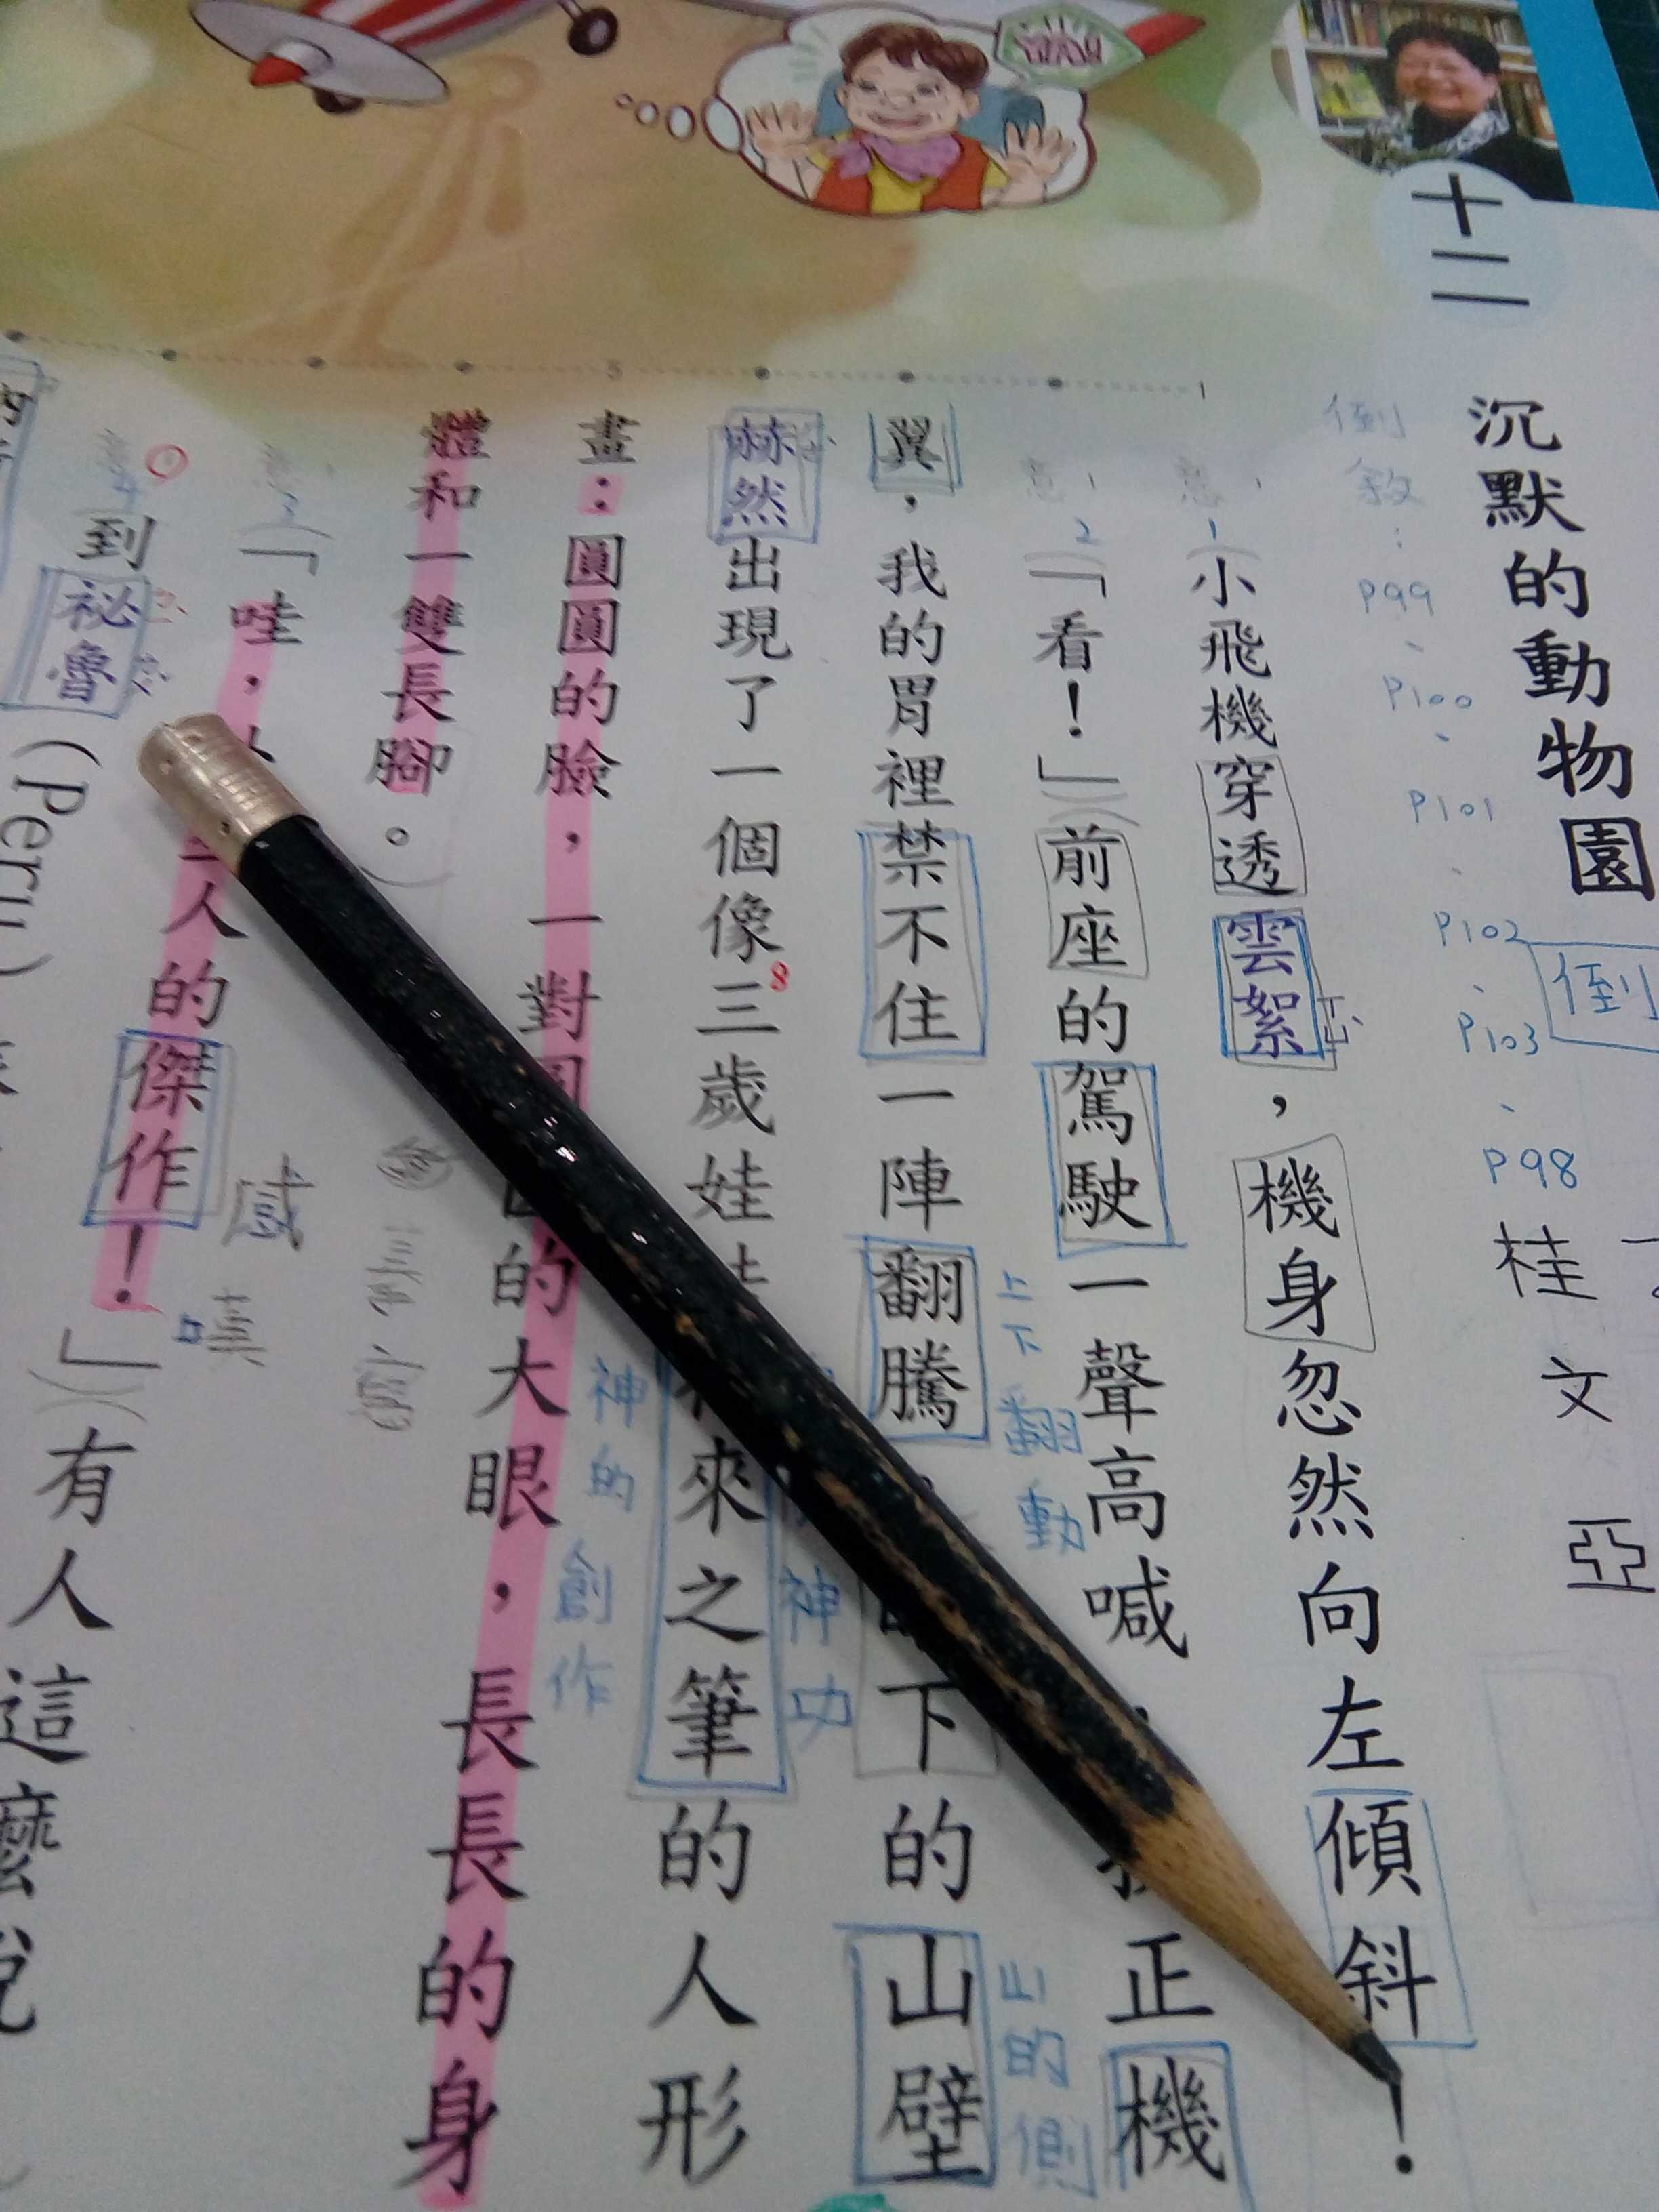 YA!!
十二
沉默的動物園
桂文亞
倒
倒敘：P99、P100、P101、P102、P103、P98
小飛機穿透雲絮，機身忽然向左傾斜！
意1
「看！」前座的駕駛一聲高喊，正機
意2
上下翻動
翼，我的胃裡禁不住一陣翻騰，下的山壁
山的側
赫然出現了一個像三歲娃來之筆的人形
8
神功
神的創作
畫：圓圓的臉，一對的大眼，長長的身
體和一雙長腳。
意3
「哇，人的傑作！」
感嘆
意4
到祕魯（Peru）
有人這麼說
5
1